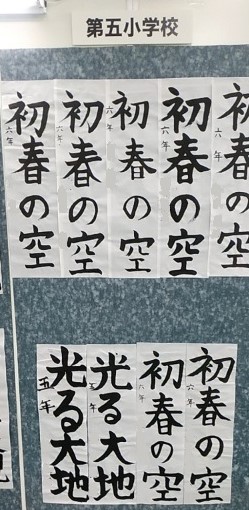 第五小学校
初春の空
六年
初春の空
六年
初春の空
六年
初春の空
六年
初春の空
六年
初春の空
六年
初春の空
六年
光る大地
五年
光る大地
五年